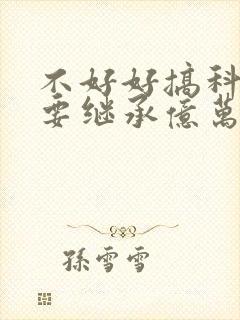 不好好搞科
要继承億萬
孫雪雪